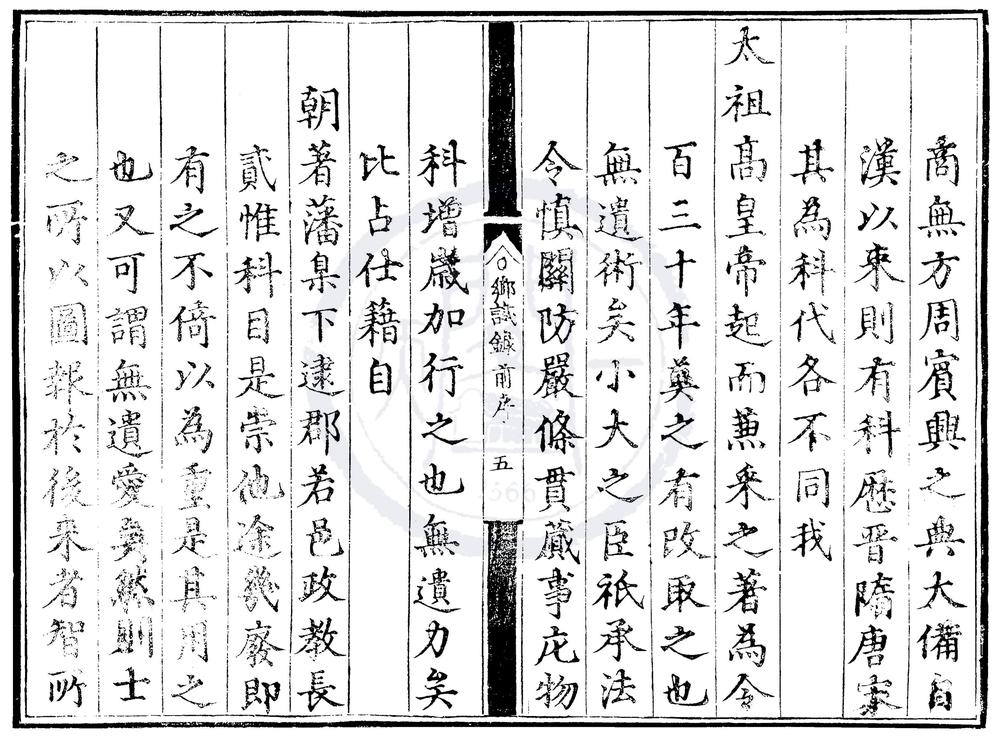 啇無方周賔興之典大備自
漢以来則有科歴晋隋唐宋
其為科代各不同我
太祖髙皇帝起而兼采之著為令
百三十年奠之有改取之也
無遺術矣小大之臣祇承法
令慎關防嚴條貫蕆事庀物
○鄉試錄前序 五
科增歲加行之也無遺力矣
比占仕籍自
朝著藩臬下逮郡若邑政教長
貳惟科目是崇他途幾廢即
有之不倚以為重是其用之
也又可謂無遺愛矣然則士
之所以圖報於後来者智所